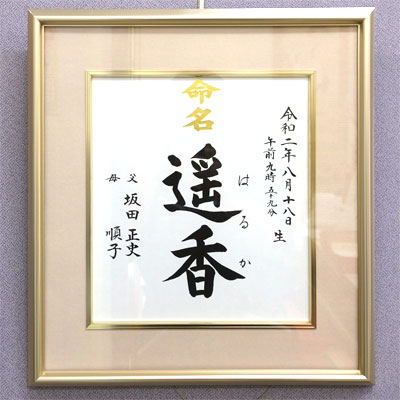 命名
令和二年八月十八日
午前九時五十九分
生
はるか
遥香
父 坂田 正史
母 順子